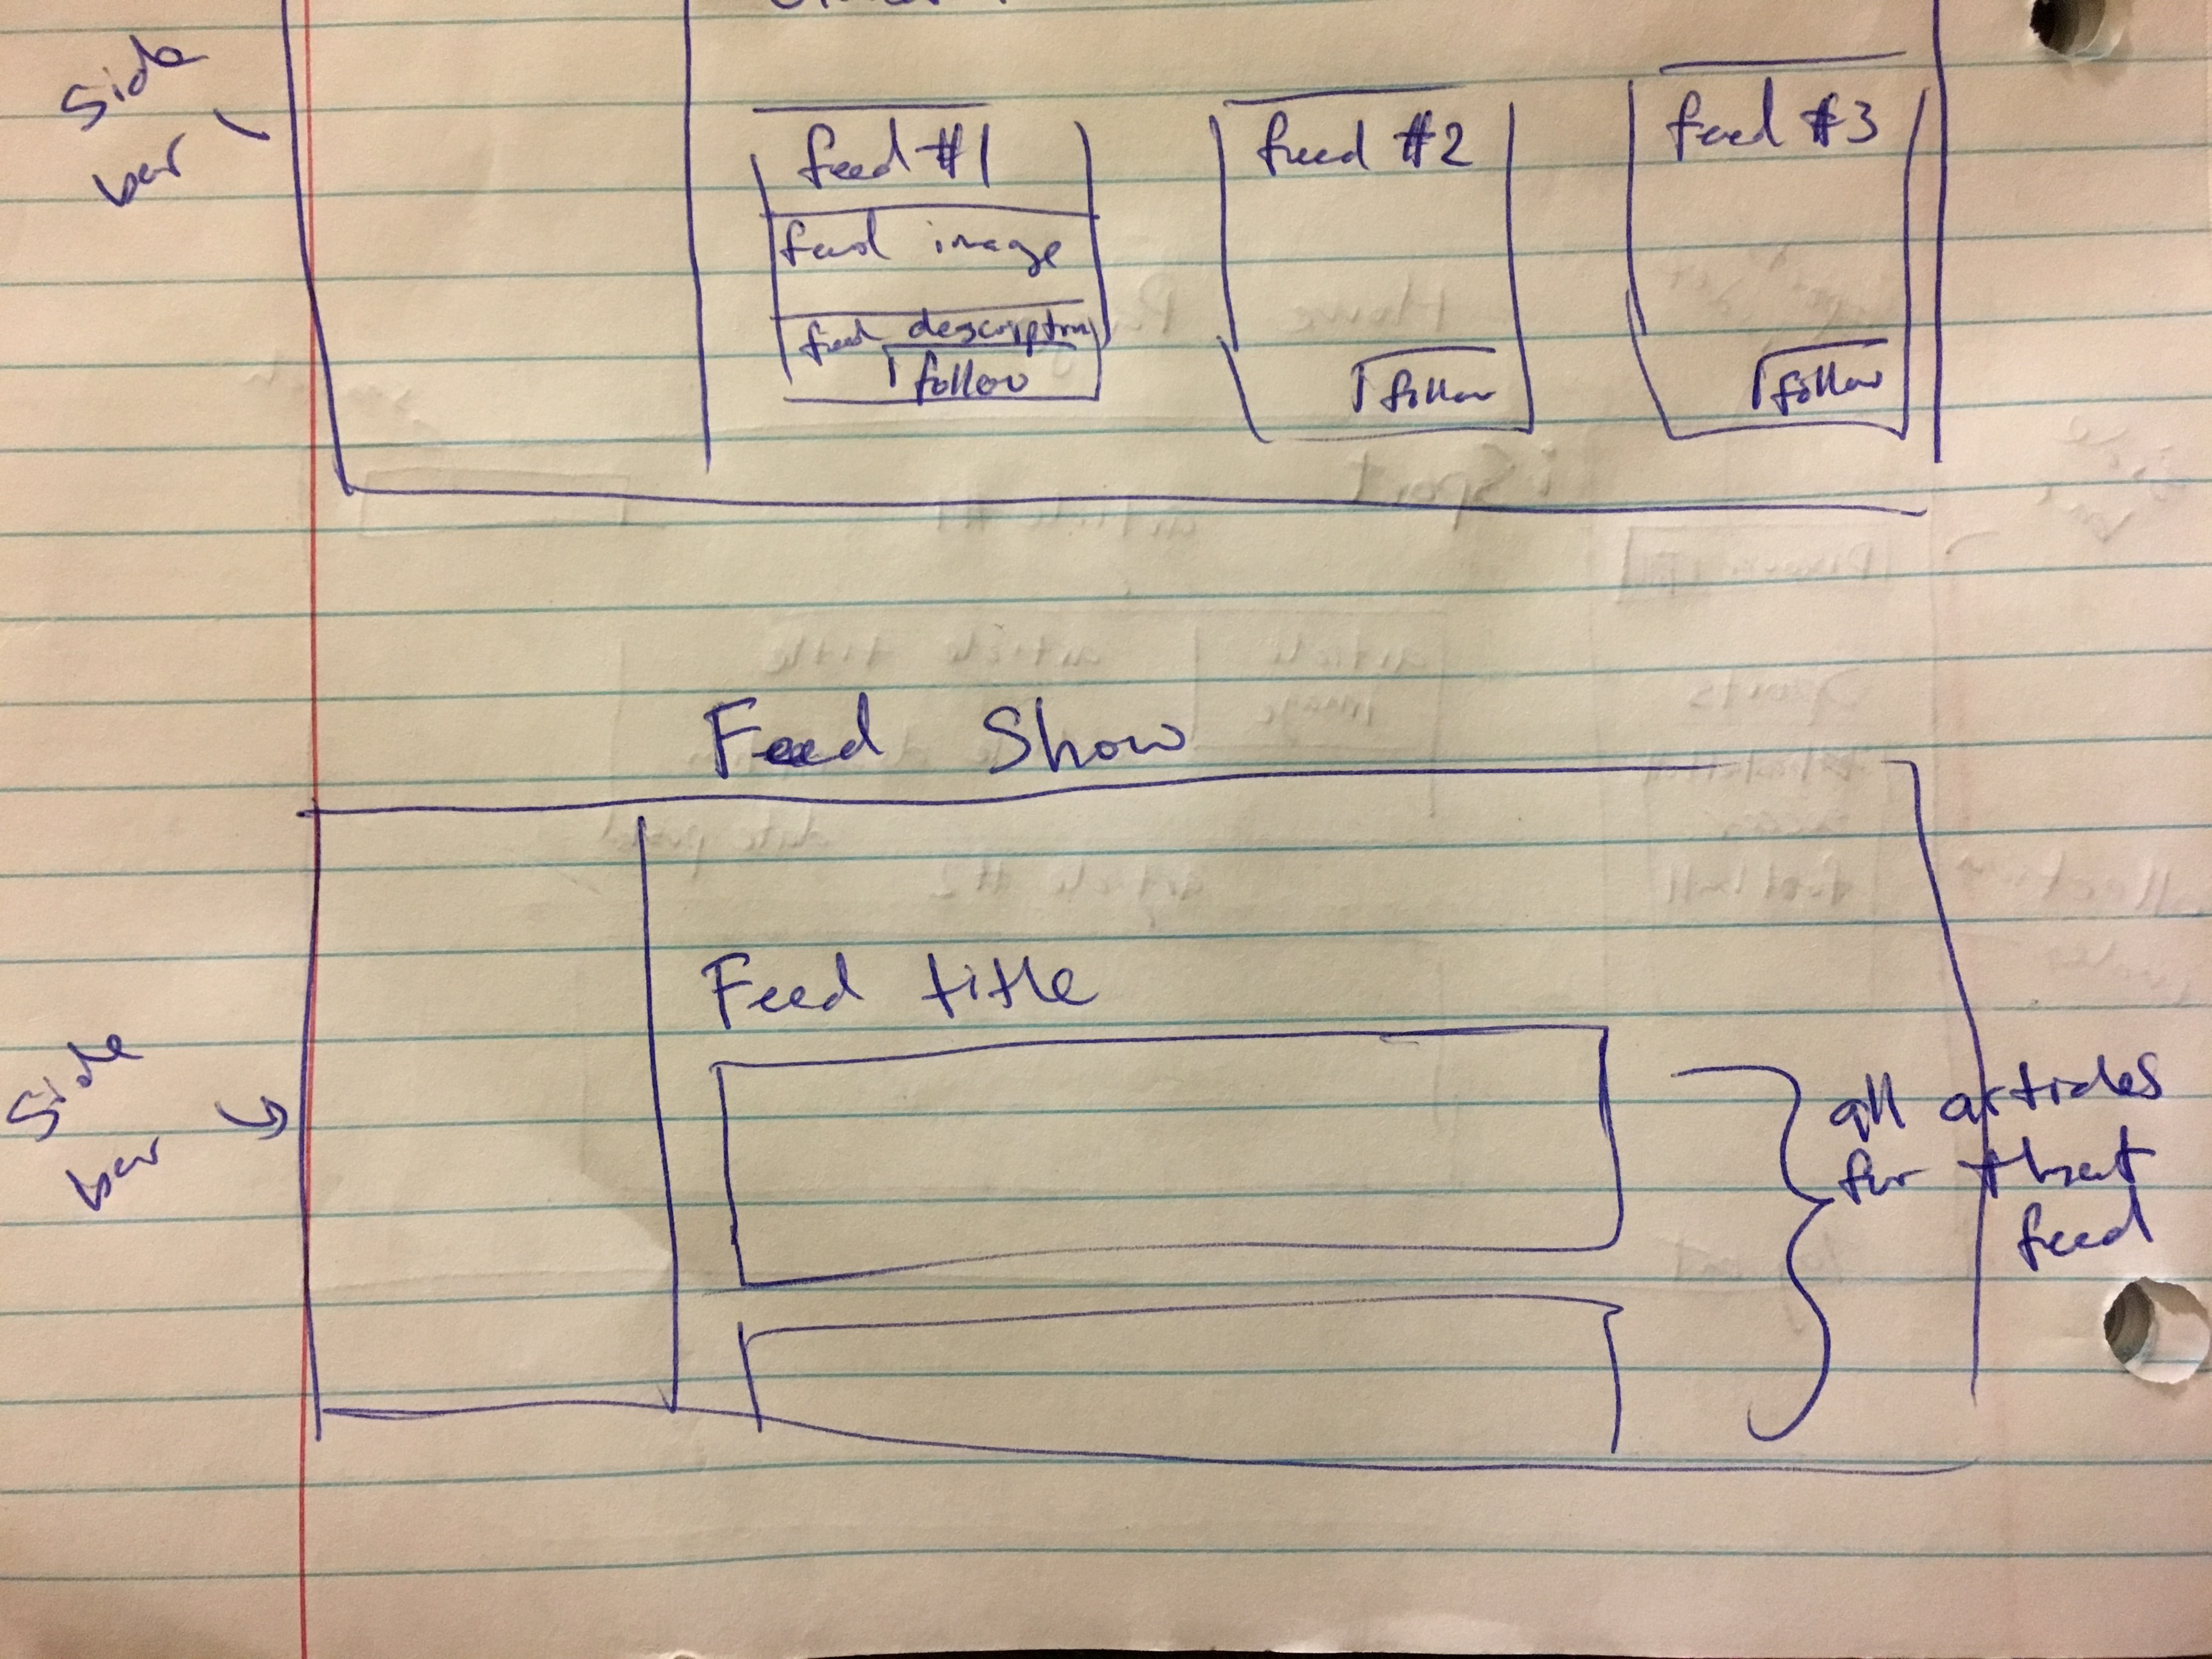 Side
bar
feed #1
feed image
feed description
follow
feed #2
follow
feed #3
follow
Feed Show
Side
bar
Feed title
all articles
for that
feed